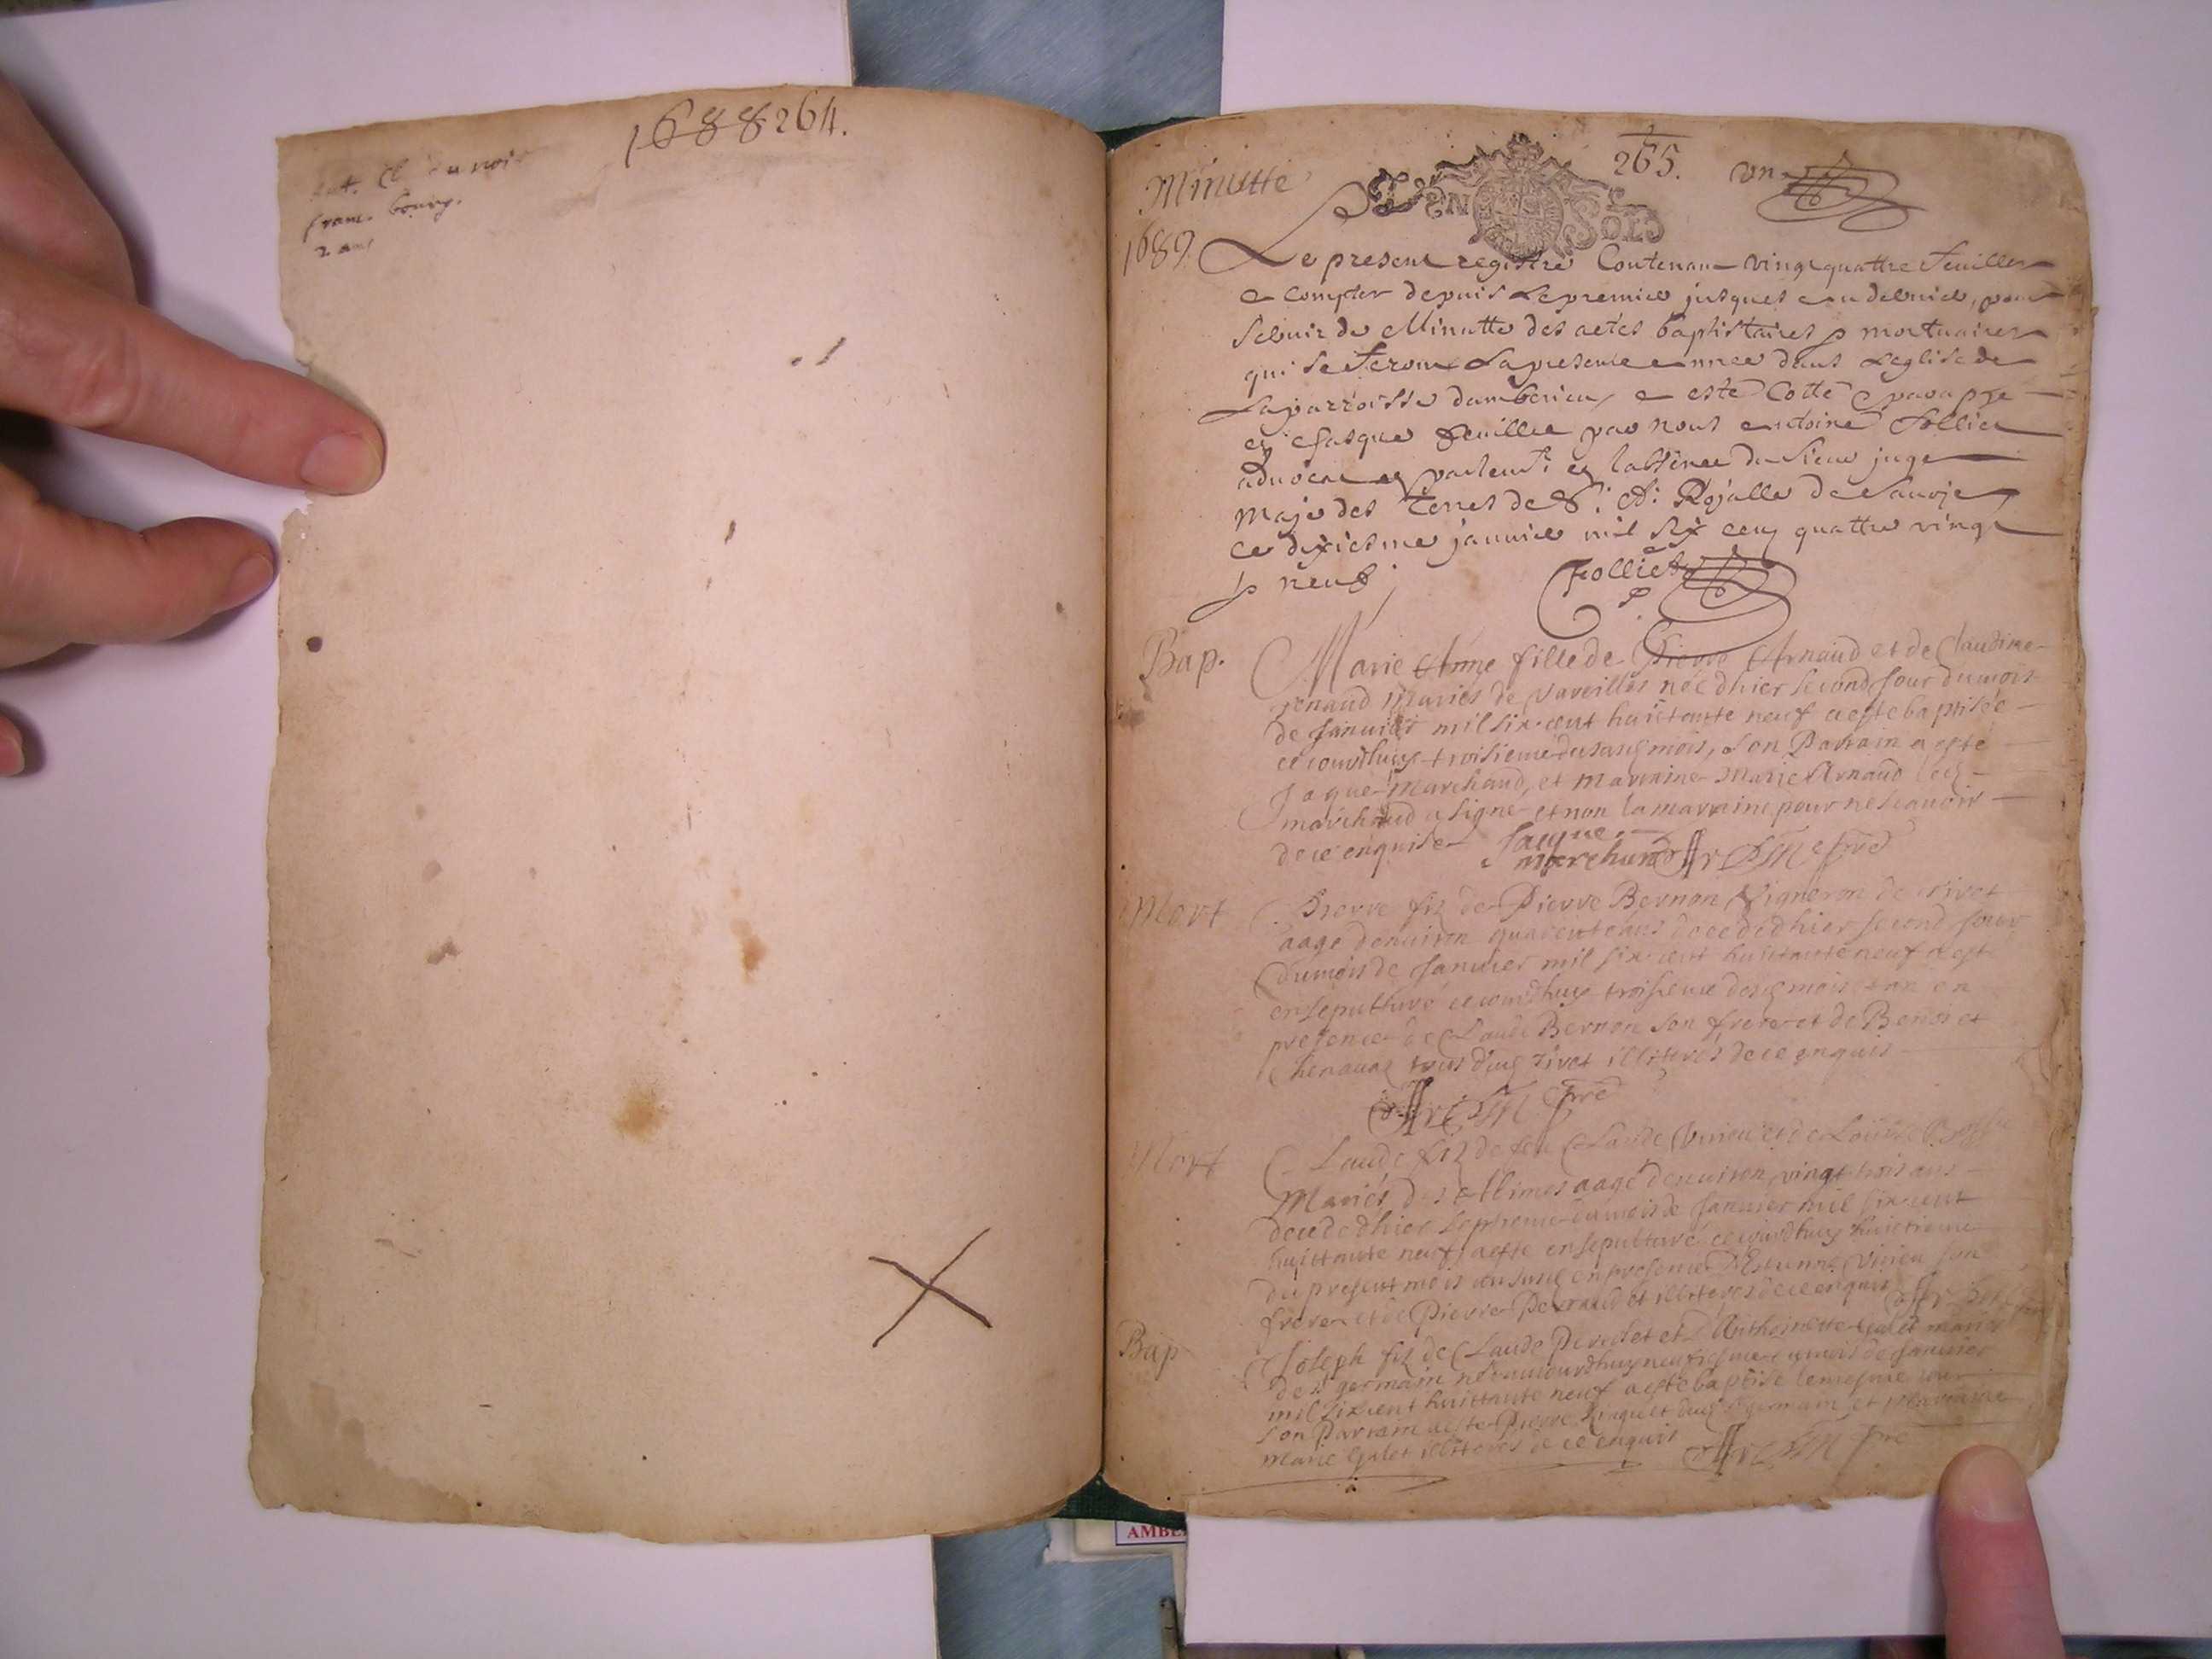 1688 264.
fram. bourg.
2 ans
265.
Un
Minutte
SIX DEN SOLS
1689
Le present registre Contenant vingt quattre feuilles
a compter depuis le premier jusques au dernier, pour
servir de Minutte des actes baptistaires & mortuaires
qui se feront la presente annee dans l'eglise de
la parroisse damberieu, a esté Cotté & paraffe
en chasque feuillet par nous antoine Folliet
advocat en parlemt. en labsence du Sieur juge
maje des Terres de S. A. Rojalle de Sauoje
ce dixiesme januier mil six cens quattre vingt
& neuf
Folliet
Bap. Marie Anne fille de Pierre Arnaud et de Claudine
renaud Mariés de Vareilles née dhier second Jour du mois
de Januier mil six cent huictante neuf a esté baptisée
ce jourdhuy troisieme dususd mois, son Parrain a esté
Jaque Marchand, et marraine Marie Arnaud led
marchand a signé et non la marraine pour ne scauoir
de ce enquise Jaque
marchand
Mort Pierre filz de Pierre Bernon Vigneron de tiret
aagé denuiron quarente ans decedé dhier second Jour
du mois de Januier mil six cent huictante neuf a esté
ensepulturé ce jourdhuy troisieme desd mois et an en
presence de Claude Bernon son frere et de Benoiet
Chenauaz tous dud tiret illiterés de ce enquis
Mort Claude filz de feu Claude Virieu et de Louise
Mariés des Allimes aagé denuiron vingt trois ans
decedé dhier septieme du mois de Januier mil six cent
huittante neuf, a esté ensepulturé ce jourdhuy huictieme
du present mois an susd en presence D'Estienne Virieu son
frere et de Pierre illiterés de ce enquis
Bap Joseph filz de Claude et D'Anthoinette Galet mariés
de St germain né aujourdhuy neufiesme du mois de Januier
mil six cent huittante neuf a esté baptisé le mesme jour
son Parrain a esté Pierre dud St germain et Marraine
Marie Galet illiterés de ce enquis
AMBE